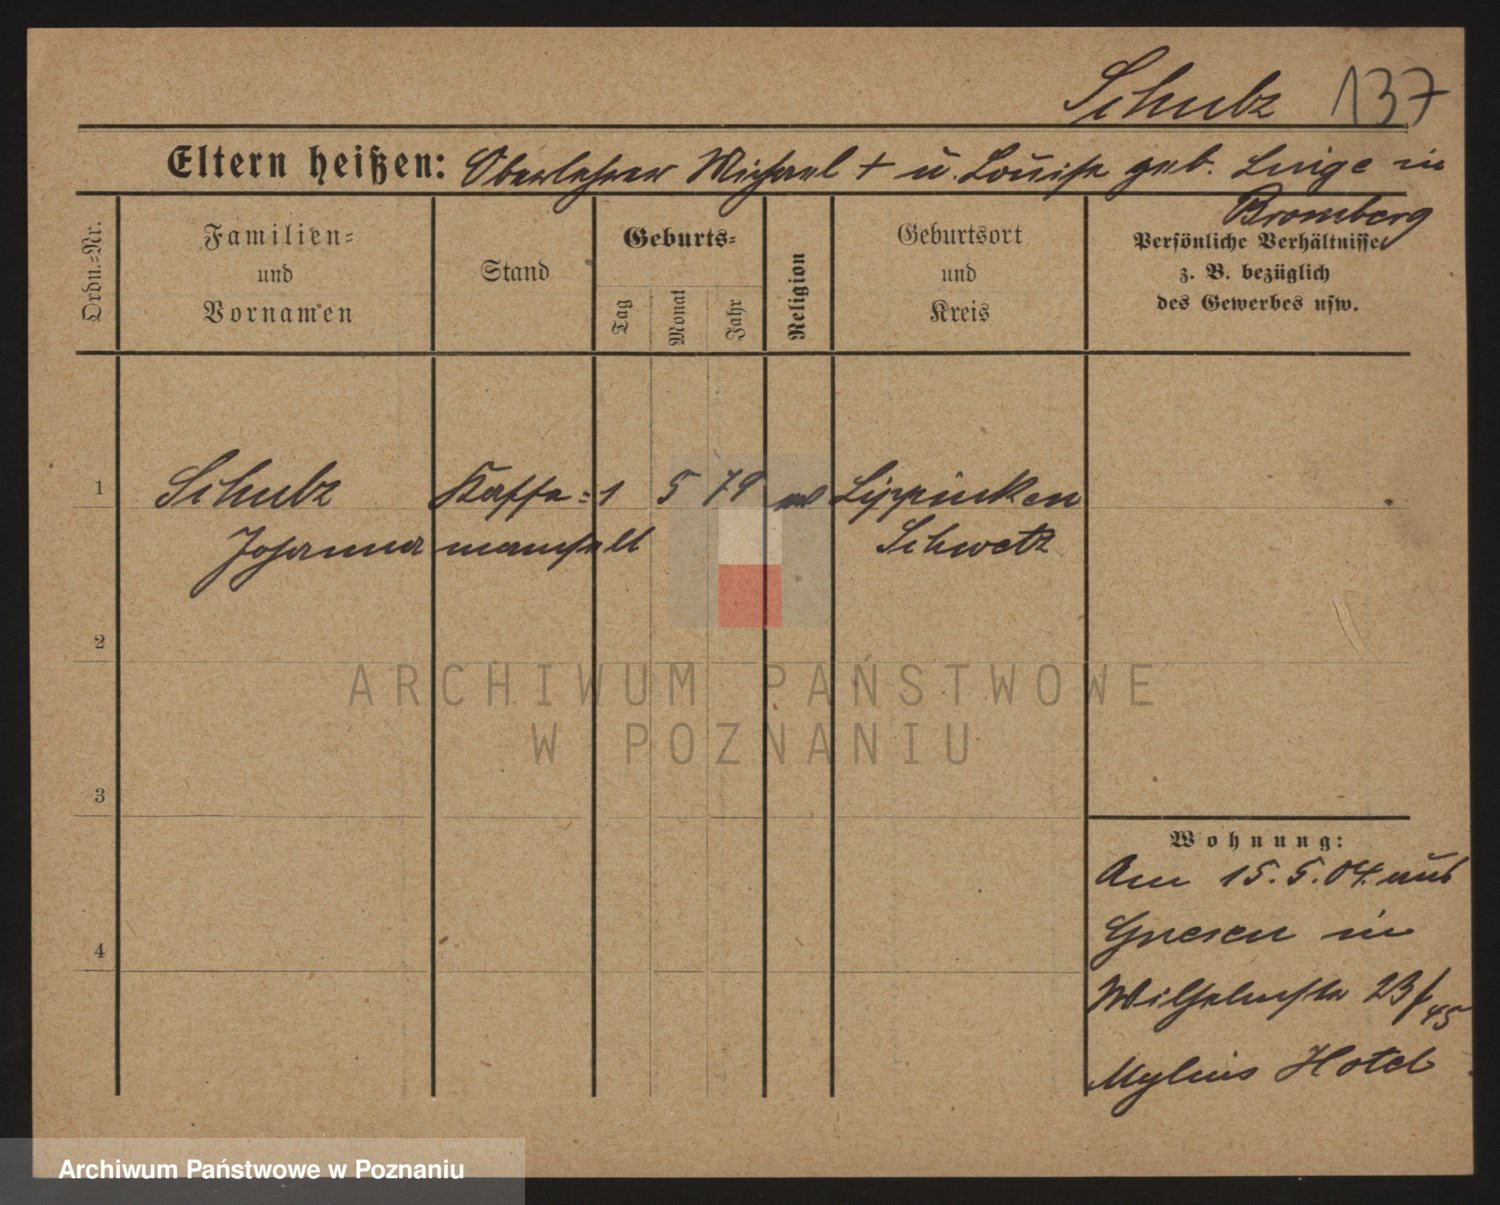 Schulz 137
Eltern heißen: Oberlehrer Michael + u. Louise geb. Linge in
Bromberg
Ordn.=Nr.
Familien=
und
Vornamen
Stand
Geburts=
Tag
Monat
Jahr
Religion
Geburtsort
und
Kreis
Persönliche Verhältnisse
z. B. bezüglich
des Gewerbes usw.
1 Schulz Kaffe= 1 5 79 Lippinken
Johanna mamsell Schwetz
2
3
4
Wohnung:
Am 15.5.04. aus
Gnesen in
Wilhelmstr 23/
45
Mylius Hotel
ARCHIWUM PAŃSTWOWE
W POZNANIU
Archiwum Państwowe w Poznaniu